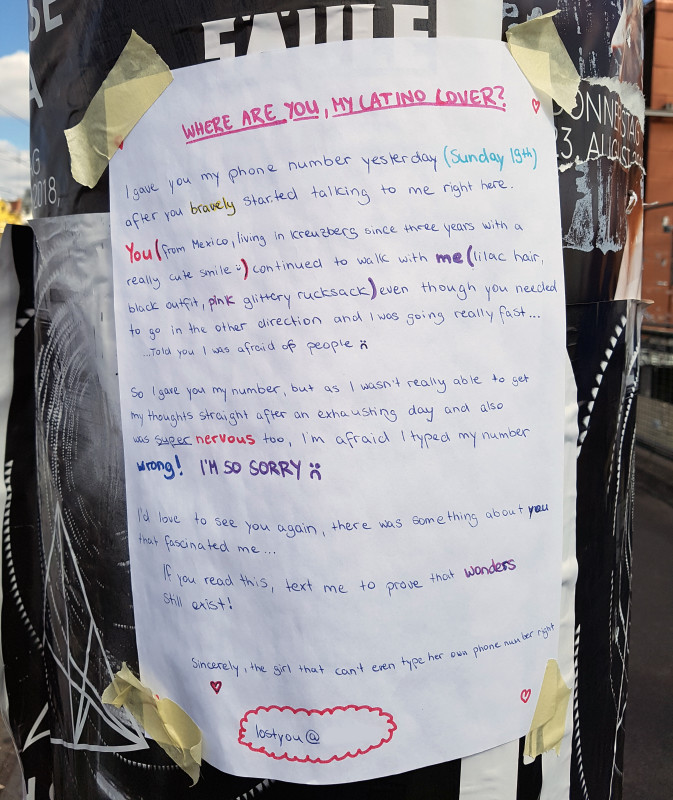 FAULE
WHERE ARE YOU, MY LATINO LOVER?
I gave you my phone number yesterday (Sunday 19th)
after you bravely started talking to me right here.
You (from Mexico, living in Kreuzberg since three years with a
really cute smile :)) continued to walk with me (lilac hair,
black outfit, pink glittery rucksack) even though you needed
to go in the other direction and I was going really fast...
...Told you I was afraid of people :(
So I gave you my number, but as I wasn't really able to get
my thoughts straight after an exhausting day and also
was super nervous too, I'm afraid I typed my number
wrong! I'M SO SORRY :(
I'd love to see you again, there was something about you
that fascinated me...
If you read this, text me to prove that wonders
still exist!
Sincerely, the girl that can't even type her own phone number right
lostyou@
2018,
23. AUGUST